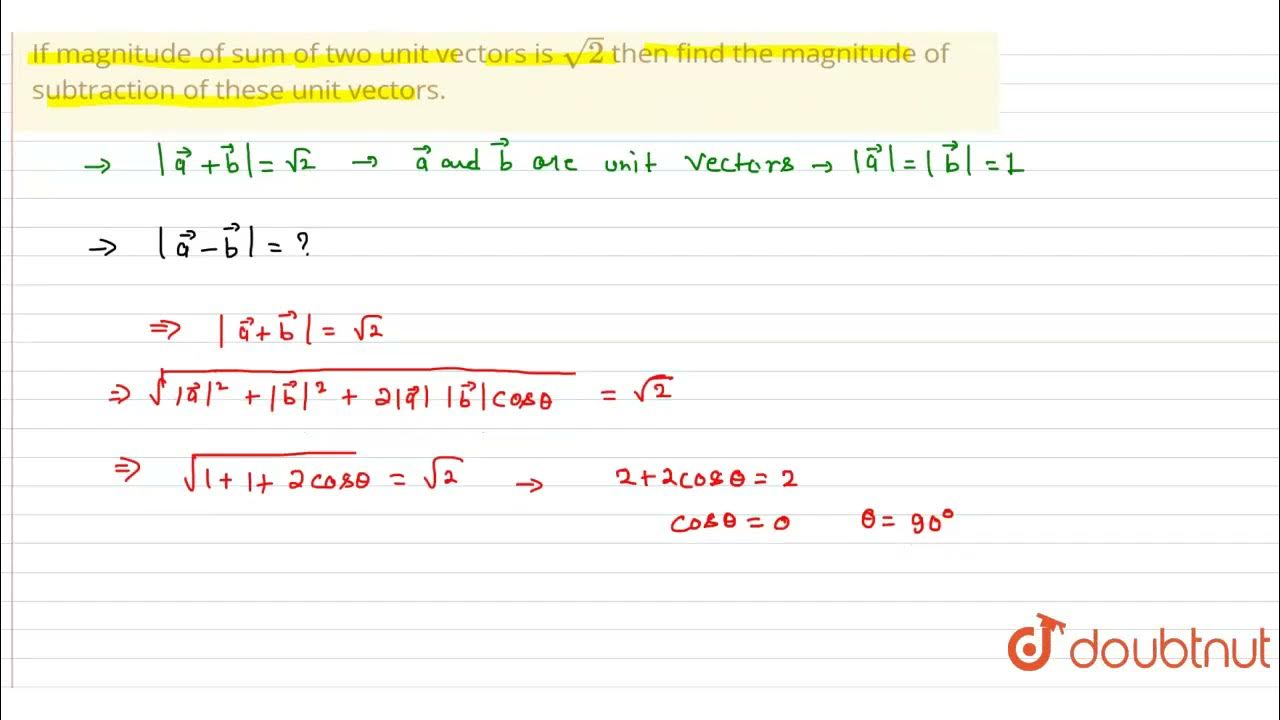 If magnitude of sum of two unit vectors is √2 then find the magnitude of
subtraction of these unit vectors.
→ |a⃗ + b⃗| = √2 → a⃗ and b⃗ are unit vectors → |a⃗| = |b⃗| = 1
→ |a⃗ − b⃗| = ?
⇒ |a⃗ + b⃗| = √2
⇒ √(|a⃗|² + |b⃗|² + 2|a⃗| |b⃗| cosθ) = √2
⇒ √(1 + 1 + 2cosθ) = √2 → 2 + 2cosθ = 2
cosθ = 0 θ = 90°
doubtnut